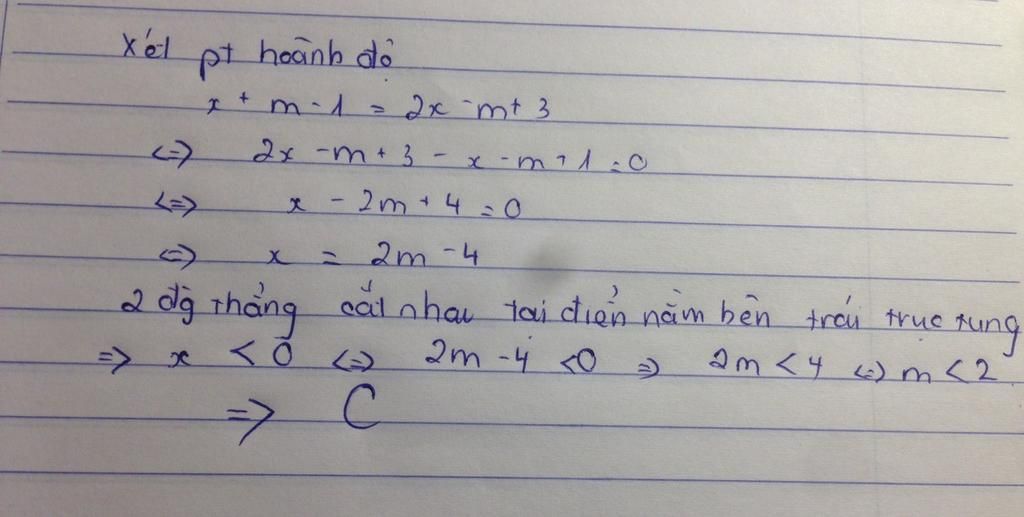 Xét pt hoành độ
x + m - 1 = 2x - m + 3
<=> 2x - m + 3 - x - m + 1 = 0
<=> x - 2m + 4 = 0
<=> x = 2m - 4
2 đg thẳng cắt nhau tại điển nằm bên trái trục tung
=> x < 0 <=> 2m - 4 < 0 => 2m < 4 <=> m < 2
=> C